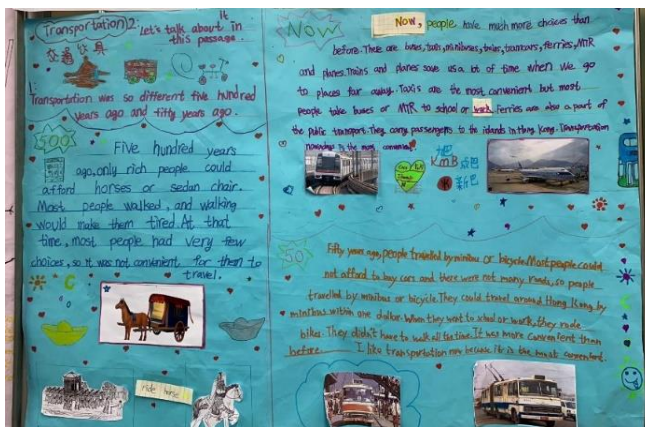 Transportation 2:
Let's talk about it
in this passage.
交通工具
Transportation was so different five hundred
years ago and fifty years ago.
500
Five hundred years
ago, only rich people could
afford horses or sedan chair.
Most people walked, and walking
would make them tired. At that
time, most people had very few
choices, so it was not convenient for them to
travel.
ride horse
Now
Now, people have much more choices than
before. There are buses, taxis, minibuses, trains, tramcars, ferries, MTR
and planes. Trains and planes save us a lot of time when we go
to places far away. Taxis are the most convenient but most
people take buses or MTR to school or work. Ferries are also a part of
the public transport. They carry passengers to the islands in Hong Kong. Transportation
nowadays is the most convenient.
KMB
50
Fifty years ago, people travelled by minibus or bicycle. Most people could
not afford to buy cars and there were not many roads, so people
travelled by minibus or bicycle. They could travel around Hong Kong by
minibus within one dollar. When they went to school or work, they rode
bikes. They didn't have to walk all the time. It was more convenient than
before. I like transportation now because it is the most convenient.